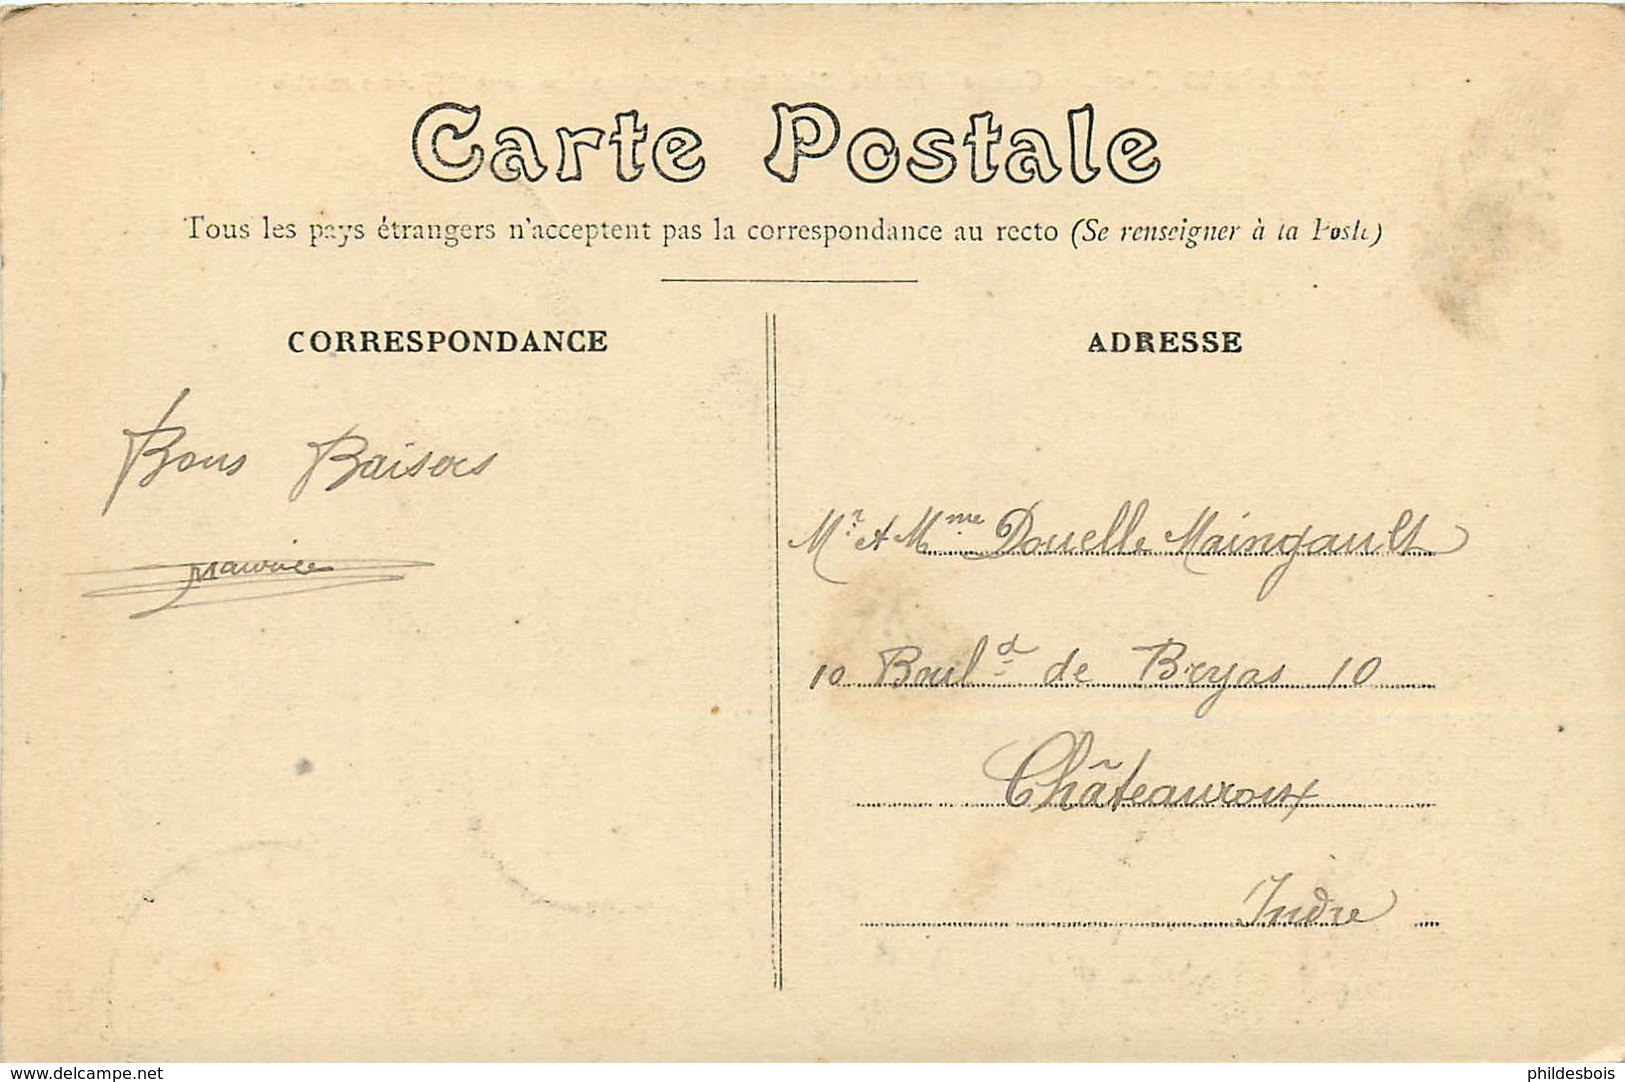 Carte Postale
Tous les pays étrangers n'acceptent pas la correspondance au recto (Se renseigner à la Poste)
CORRESPONDANCE
Bons Baisers
Maurice
ADRESSE
Mr et Mme Douelle Maingault
10 Bould de Bryas 10
Châteauroux
Indre
www.delcampe.net
phildesbois